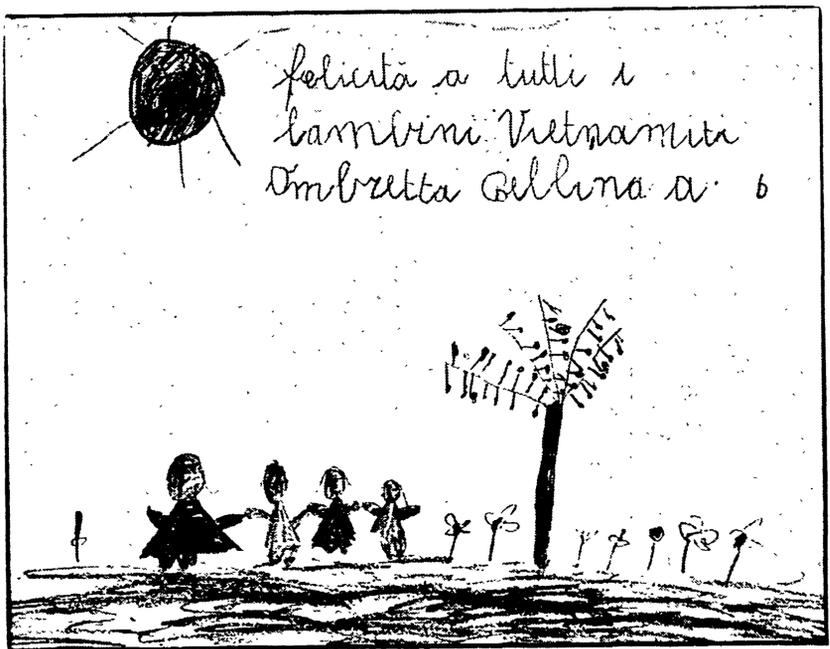 felicità a tutti i
bambini Vietnamiti
Ombretta Bellina a. 6